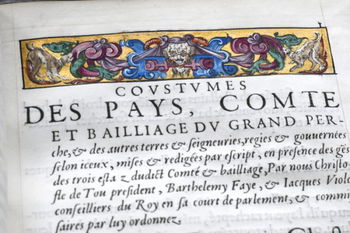 COVSTVMES
DES PAYS, COMTE
ET BAILLIAGE DV GRAND PER-
che, & des autres terres & seigneuries, regies & gouuernees
selon iceux, mises & redigées par escript, en presence des gēs
des trois estaz dudict Comté & bailliage, Par nous Christo
fle de Tou president, Barthelemy Faye, & Iacques Viole
conseilliers du Roy en sa court de parlement, & commis
saires par luy ordonnez.